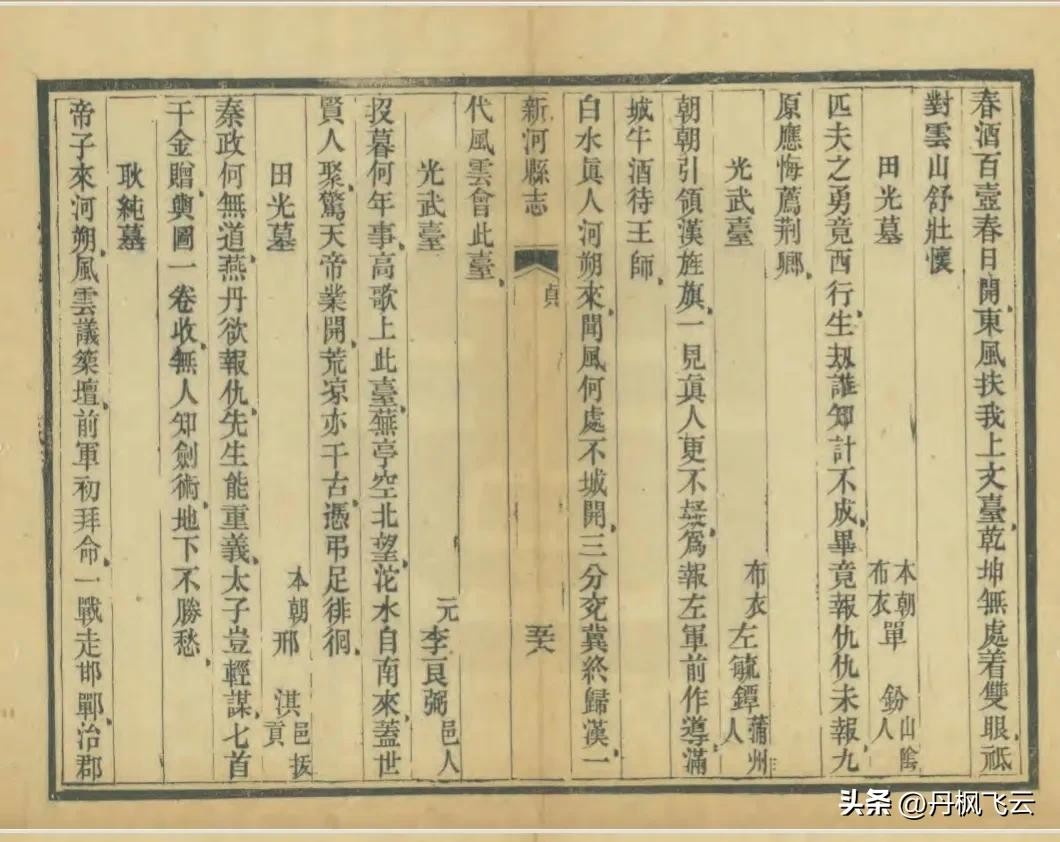 春酒百壺春日開東風扶我上文臺乾坤無處着雙眼祗
對雲山舒壯懷
田光墓 本朝布衣單 鈖山陰人
匹夫之勇竟西行生刼誰知計不成畢竟報仇仇未報九
原應悔薦荆卿
光武臺 布衣左毓鐔蒲州人
朝朝引領漢旌旗一見眞人更不疑爲報左軍前作導滿
城牛酒待王師
白水眞人河朔來聞風何處不城開三分兗冀終歸漢一
新河縣志 貞 至六
代風雲會此臺
光武臺 元李良弼邑人
投暮何年事高歌上此臺蕪亭空北望沱水自南來蓋世
賢人聚驚天帝業開荒凉亦千古憑弔足徘徊
田光墓 本朝邢 淇邑拔貢
秦政何無道燕丹欲報仇先生能重義太子豈輕謀七首
千金贈輿圖一卷收無人知劍術地下不勝愁
耿純墓
帝子來河朔風雲議築壇前軍初拜命一戰走邯鄲治郡
头条 @丹枫飞云